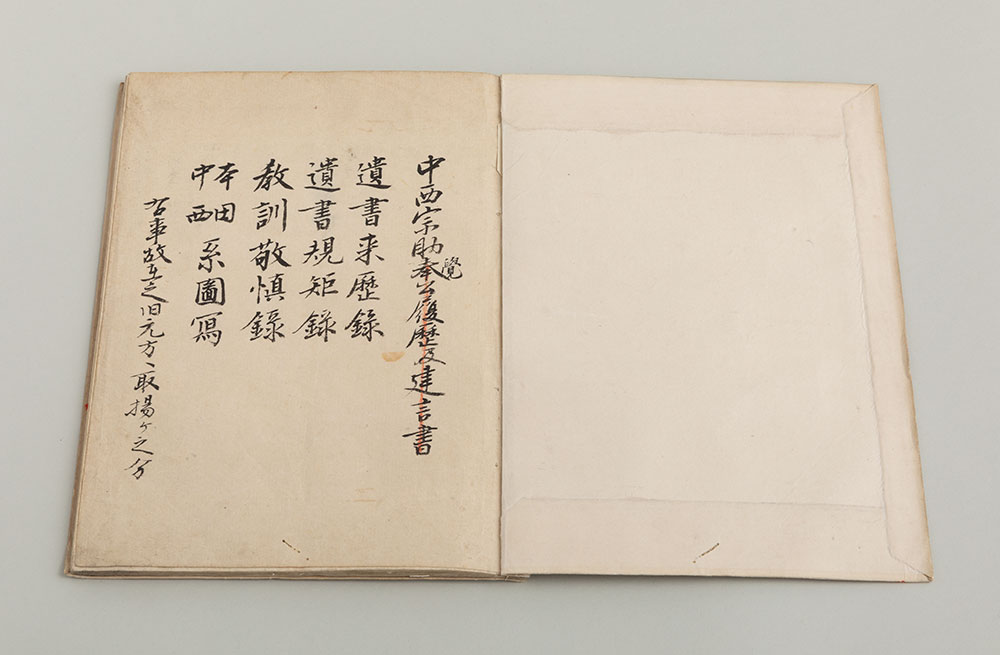 中西宗助覺奉公履歴及建言書
遺書来歴錄
遺書規矩錄
教訓敬慎錄
本田
中西
系圖寫
右事故在之旧元方ヘ取揚ケ之分